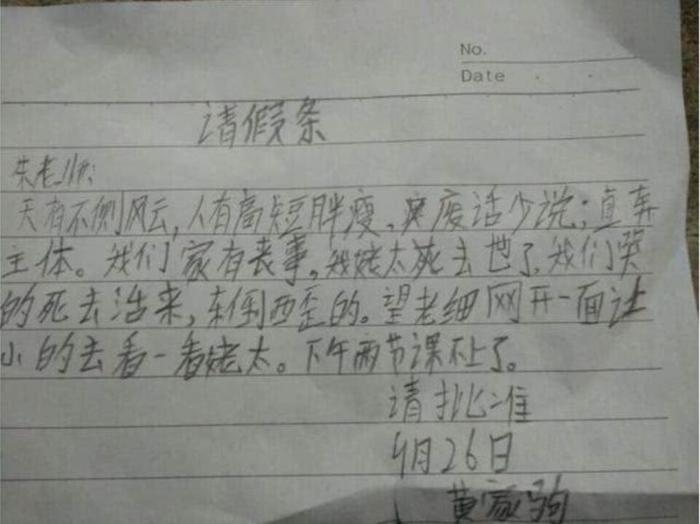 No.
Date
请假条
朱老师:
天有不侧风云,人有高短胖瘦,废话少说;直奔
主体。我们家有丧事,我姥太死去世了,我们哭
的死去活来,东倒西歪的。望老细网开一面让
小的去看一看姥太。下午两节课不上了。
请批准
4月26日
黄家驹